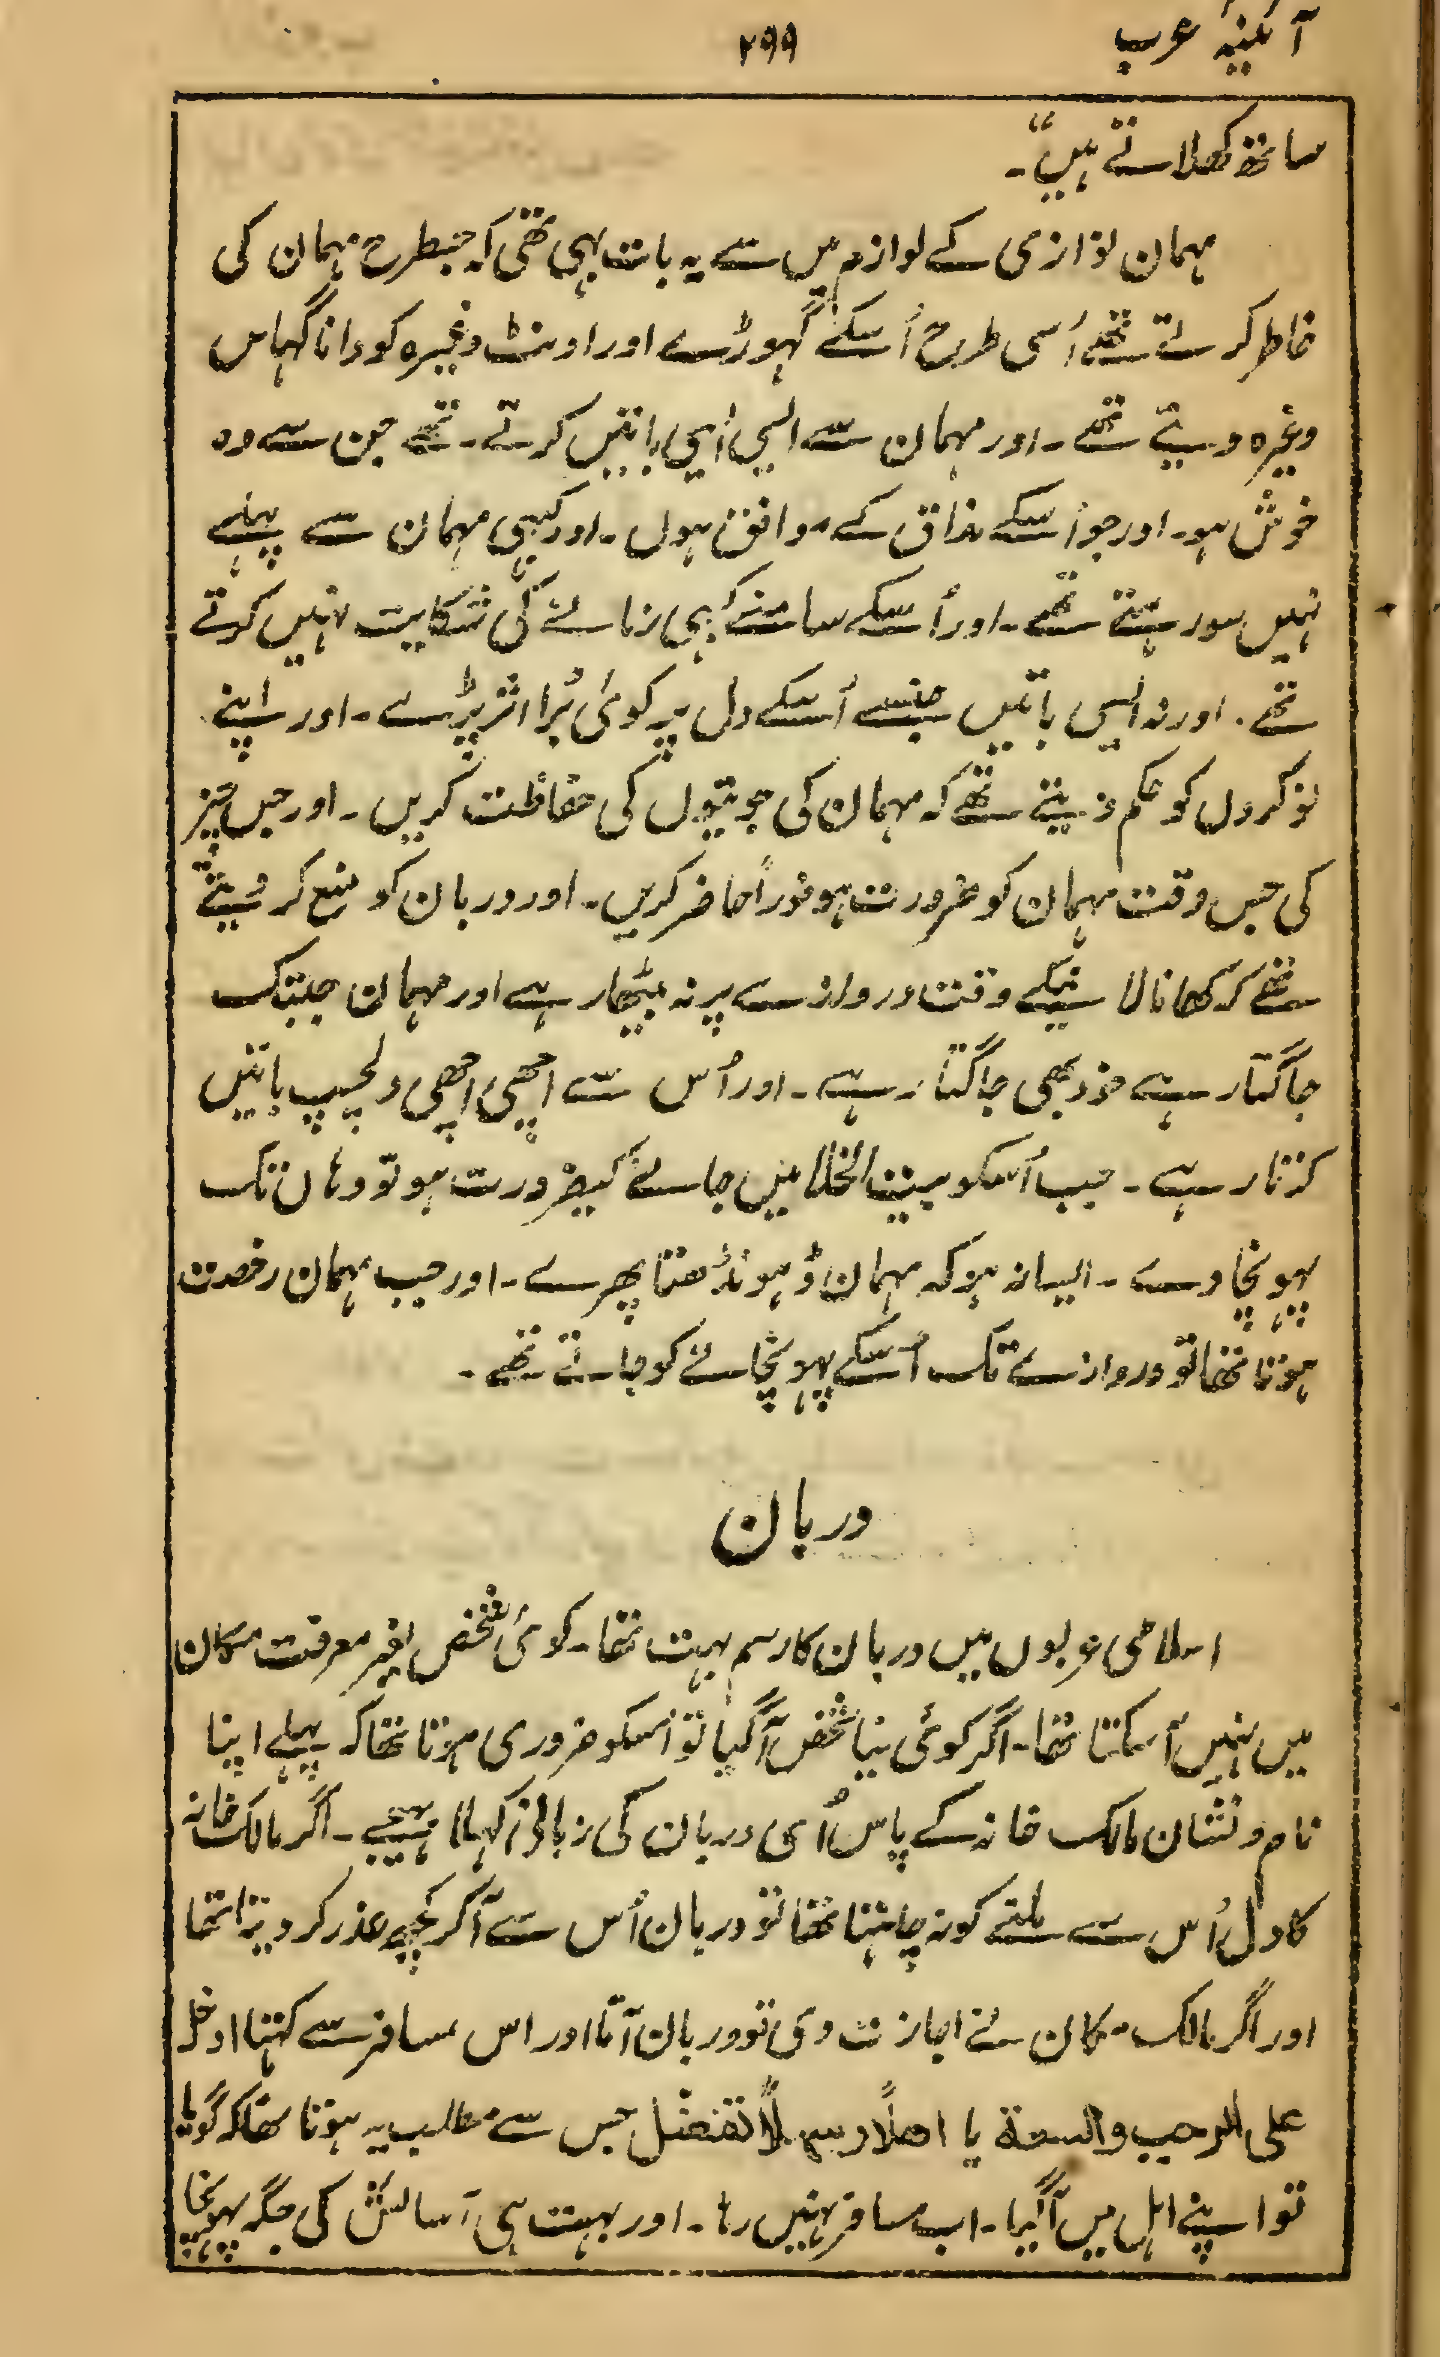 آئینۂ عرب ۲۹۹
ساتھ کھلاتے ہیں"۔
مہمان نوازی کے لوازم میں سے یہ بات بہی تھی کہ جسطرح مہمان کی
خاطر کرتے تھے اُسی طرح اُسکے گھوڑے اور اونٹ وغیرہ کو دانا گہاس
وغیرہ دیتے تھے۔ اور مہمان سے ایسی ایسی باتیں کرتے۔ تھے جن سے وہ
خوش ہو۔ اور جو اُسکے مذاق کے موافق ہوں۔ اور کبہی مہمان سے پہلے
نہیں سو رہتے تھے۔ اور اُسکے سامنے کبہی زمانے کی شکایت نہیں کرتے
تھے۔ اور نہ ایسی باتیں جنسے اُسکے دل پر کوئی بُرا اثر پڑے۔ اور اپنے
نوکروں کو حکم دیتے تھے کہ مہمان کی جوتیوں کی حفاظت کریں۔ اور جس چیز
کی جس وقت مہمان کو ضرورت ہو فوراً حاضر کریں۔ اور دربان کو منع کر دیتے
تھے کہ کھانا لانیکے وقت دروازے پر نہ بیٹھا رہے اور مہمان جبتک
جاگتا رہے خود بھی جاگتا رہے۔ اور اُس سے اچھی اچھی دلچسپ باتیں
کرتا رہے۔ جب اُسکو بیت الخلا میں جانے کیضرورت ہو تو وہاں تک
پہونچا دے۔ ایسا نہ ہو کہ مہمان ڈہونڈھتا پھرے۔ اور جب مہمان رخصت
ہوتا تھا تو دروازے تک اُسکے پہونچانے کو جاتے تھے۔
دربان
اسلامی عربوں میں دربان کا رسم بہت تھا۔ کوئی شخص بغیر معرفت مکان
میں نہیں آ سکتا تھا۔ اگر کوئی نیا شخص آ گیا تو اُسکو ضروری ہوتا تھا کہ پہلے اپنا
نام و نشان مالک خانہ کے پاس اُسی دربان کی زبانی کہلا بہیجے۔ اگر مالک خانہ
کا دل اُس سے ملنے کو نہ چاہتا تھا تو دربان اُس سے آکر کچہہ عذر کر دیتا تھا
اور اگر مالک مکان نے اجازت دی تو دربان آتا اور اس مسافر سے کہتا ادخل
علی الرحب والسعة یا اھلاً وسہلاً تفضل جس سے مطلب یہ ہوتا تھا کہ گویا
تو اپنے اہل میں آگیا۔ اب مسافر نہیں رہا۔ اور بہت ہی آسائش کی جگہ پہونچا